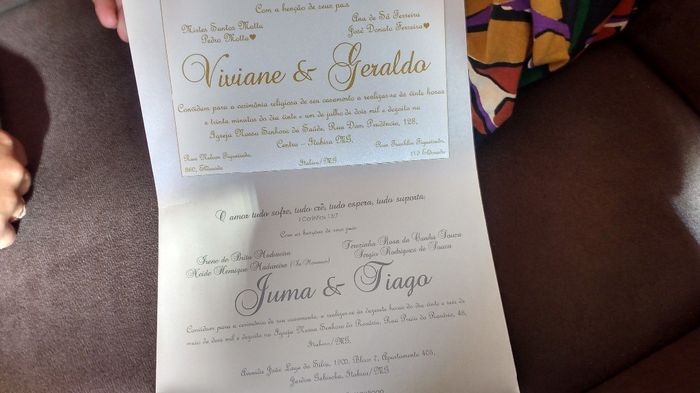 Com a benção de seus pais
Mirtes Santos Motta
Pedro Motta
Ana de Sá Ferreira
José Donato Ferreira
Viviane & Geraldo
Convidam para a cerimônia religiosa de seu casamento a realizar-se às vinte horas
e trinta minutos do dia vinte e um de julho de dois mil e dezoito na
Igreja Nossa Senhora da Saúde, Rua Dom Prudêncio, 128,
Centro - Itabira MG.
Rua Figueiredo,
Itabira/MG
O amor tudo sofre, tudo crê, tudo espera, tudo suporta.
I Coríntios 13:7
Com as bençãos de seus pais
Irene de Brito Madureira
Neide Henrique Madureira (In Memorian)
Terezinha Rosa da Cunha Souza
Sérgio Rodrigues de Souza
Juma & Tiago
Convidam para a cerimônia de seu casamento, a realizar-se às dezoito horas do dia vinte e seis de
maio de dois mil e dezoito na Igreja Nossa Senhora do Rosário, Rua do Rosário, 48,
Itabira/MG.
Avenida João Lage da Silva, 1900, Bloco 2, Apartamento 403,
Jardim Itabira/MG